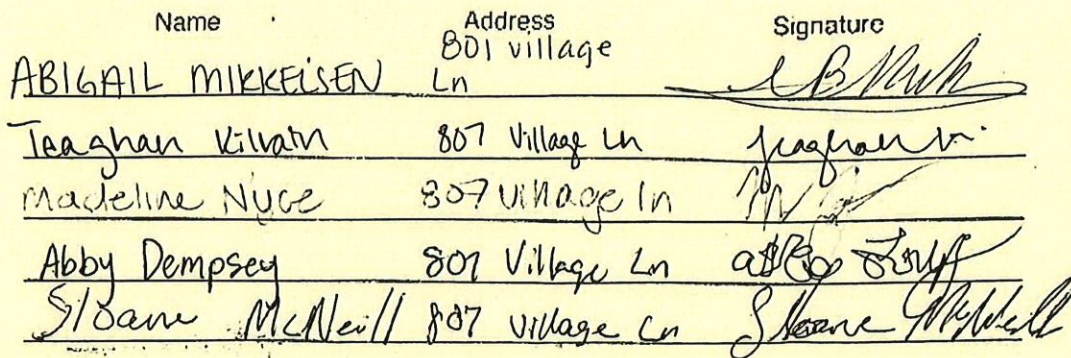 Name Address Signature
801 village
ABIGAIL MIKKELSEN Ln
Teaghan Kilvain 807 Village Ln
Madeline Nuce 807 village ln
Abby Dempsey 807 Village Ln
Sloane McNeill 807 village Ln Sloane McNeill